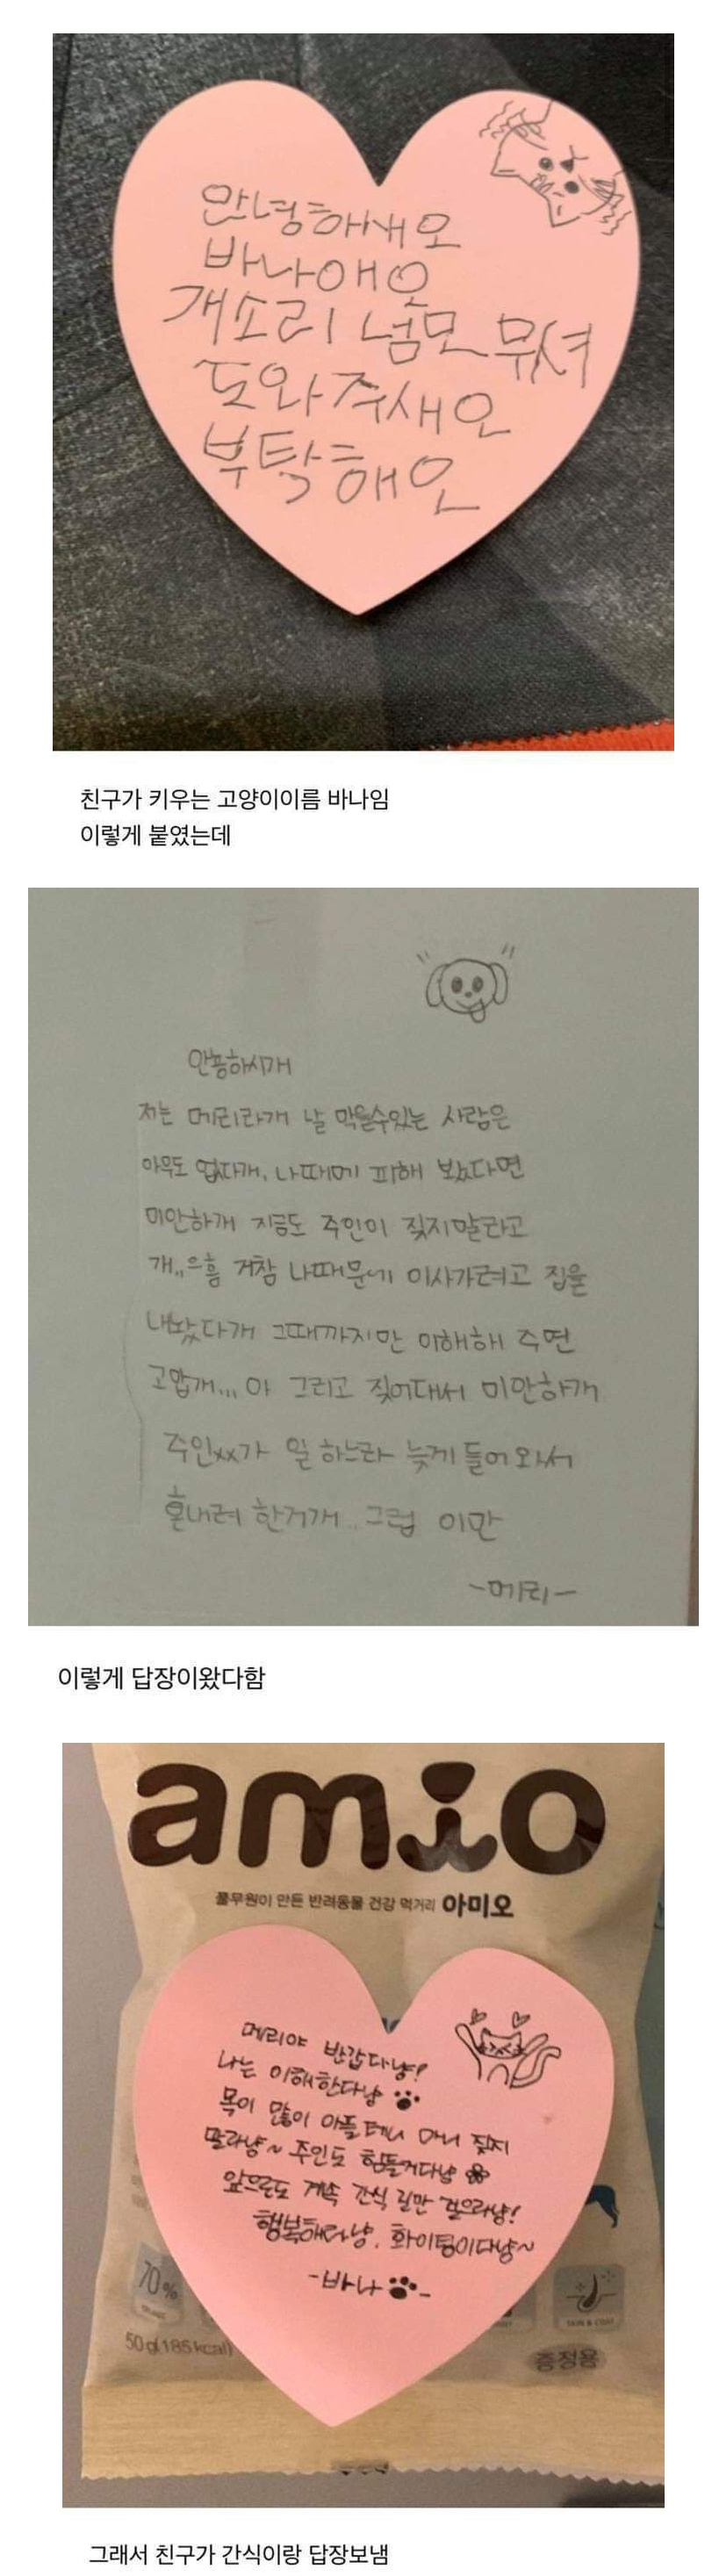 안녕하새오
바나애오
개소리 넘모 무셔
도와주새오
부탁해오
친구가 키우는 고양이이름 바나임
이렇게 붙였는데
안뇽하시개
저는 메리라개 날 막을수있는 사람은
아무도 업다개, 나때메 피해 봤다면
미안하개 지금도 주인이 짖지말라고
개,,으흠 거참 나때문에 이사가려고 집을
내놨다개 그때까지만 이해해 주면
고맙개... 아 그리고 짖어대서 미안하개
주인xx가 일 하느라 늦게 들어와서
혼내려 한거개.. 그럼 이만
-메리-
이렇게 답장이왔다함
amio
풀무원이 만든 반려동물 건강 먹거리 아미오
메리야 반갑다냥!
나는 이해한다냥
목이 많이 아플테니 마니 짖지
말라냥~ 주인도 힘들거다냥
앞으로도 계속 간식 길만 걸으라냥!
행복해라냥. 화이팅이다냥~
-바나-
70%
50g(185kcal)
SKIN & COAT
증정용
그래서 친구가 간식이랑 답장보냄